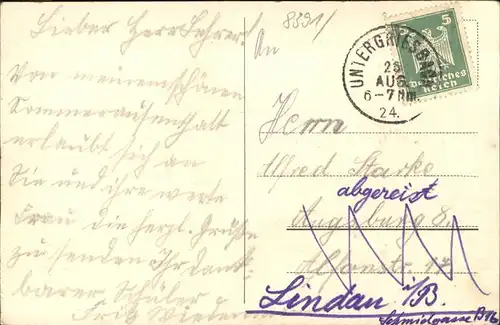 Lieber Herr Lehrer!
Von meinem schönen
Sommeraufenthalt
erlaubt sich an
Sie und ihre werte
Frau die herzl. Grüße
zu senden Ihr dank-
barer Schüler
Fritz
8591/
An
UNTERGRIESBACH
25
AUG.
6-7 Nm.
24.
5
Deutsches
Reich
Herrn
Alfred Starke
abgereist
Augsburg 8
17
Lindau i/B.
Schmidgasse B